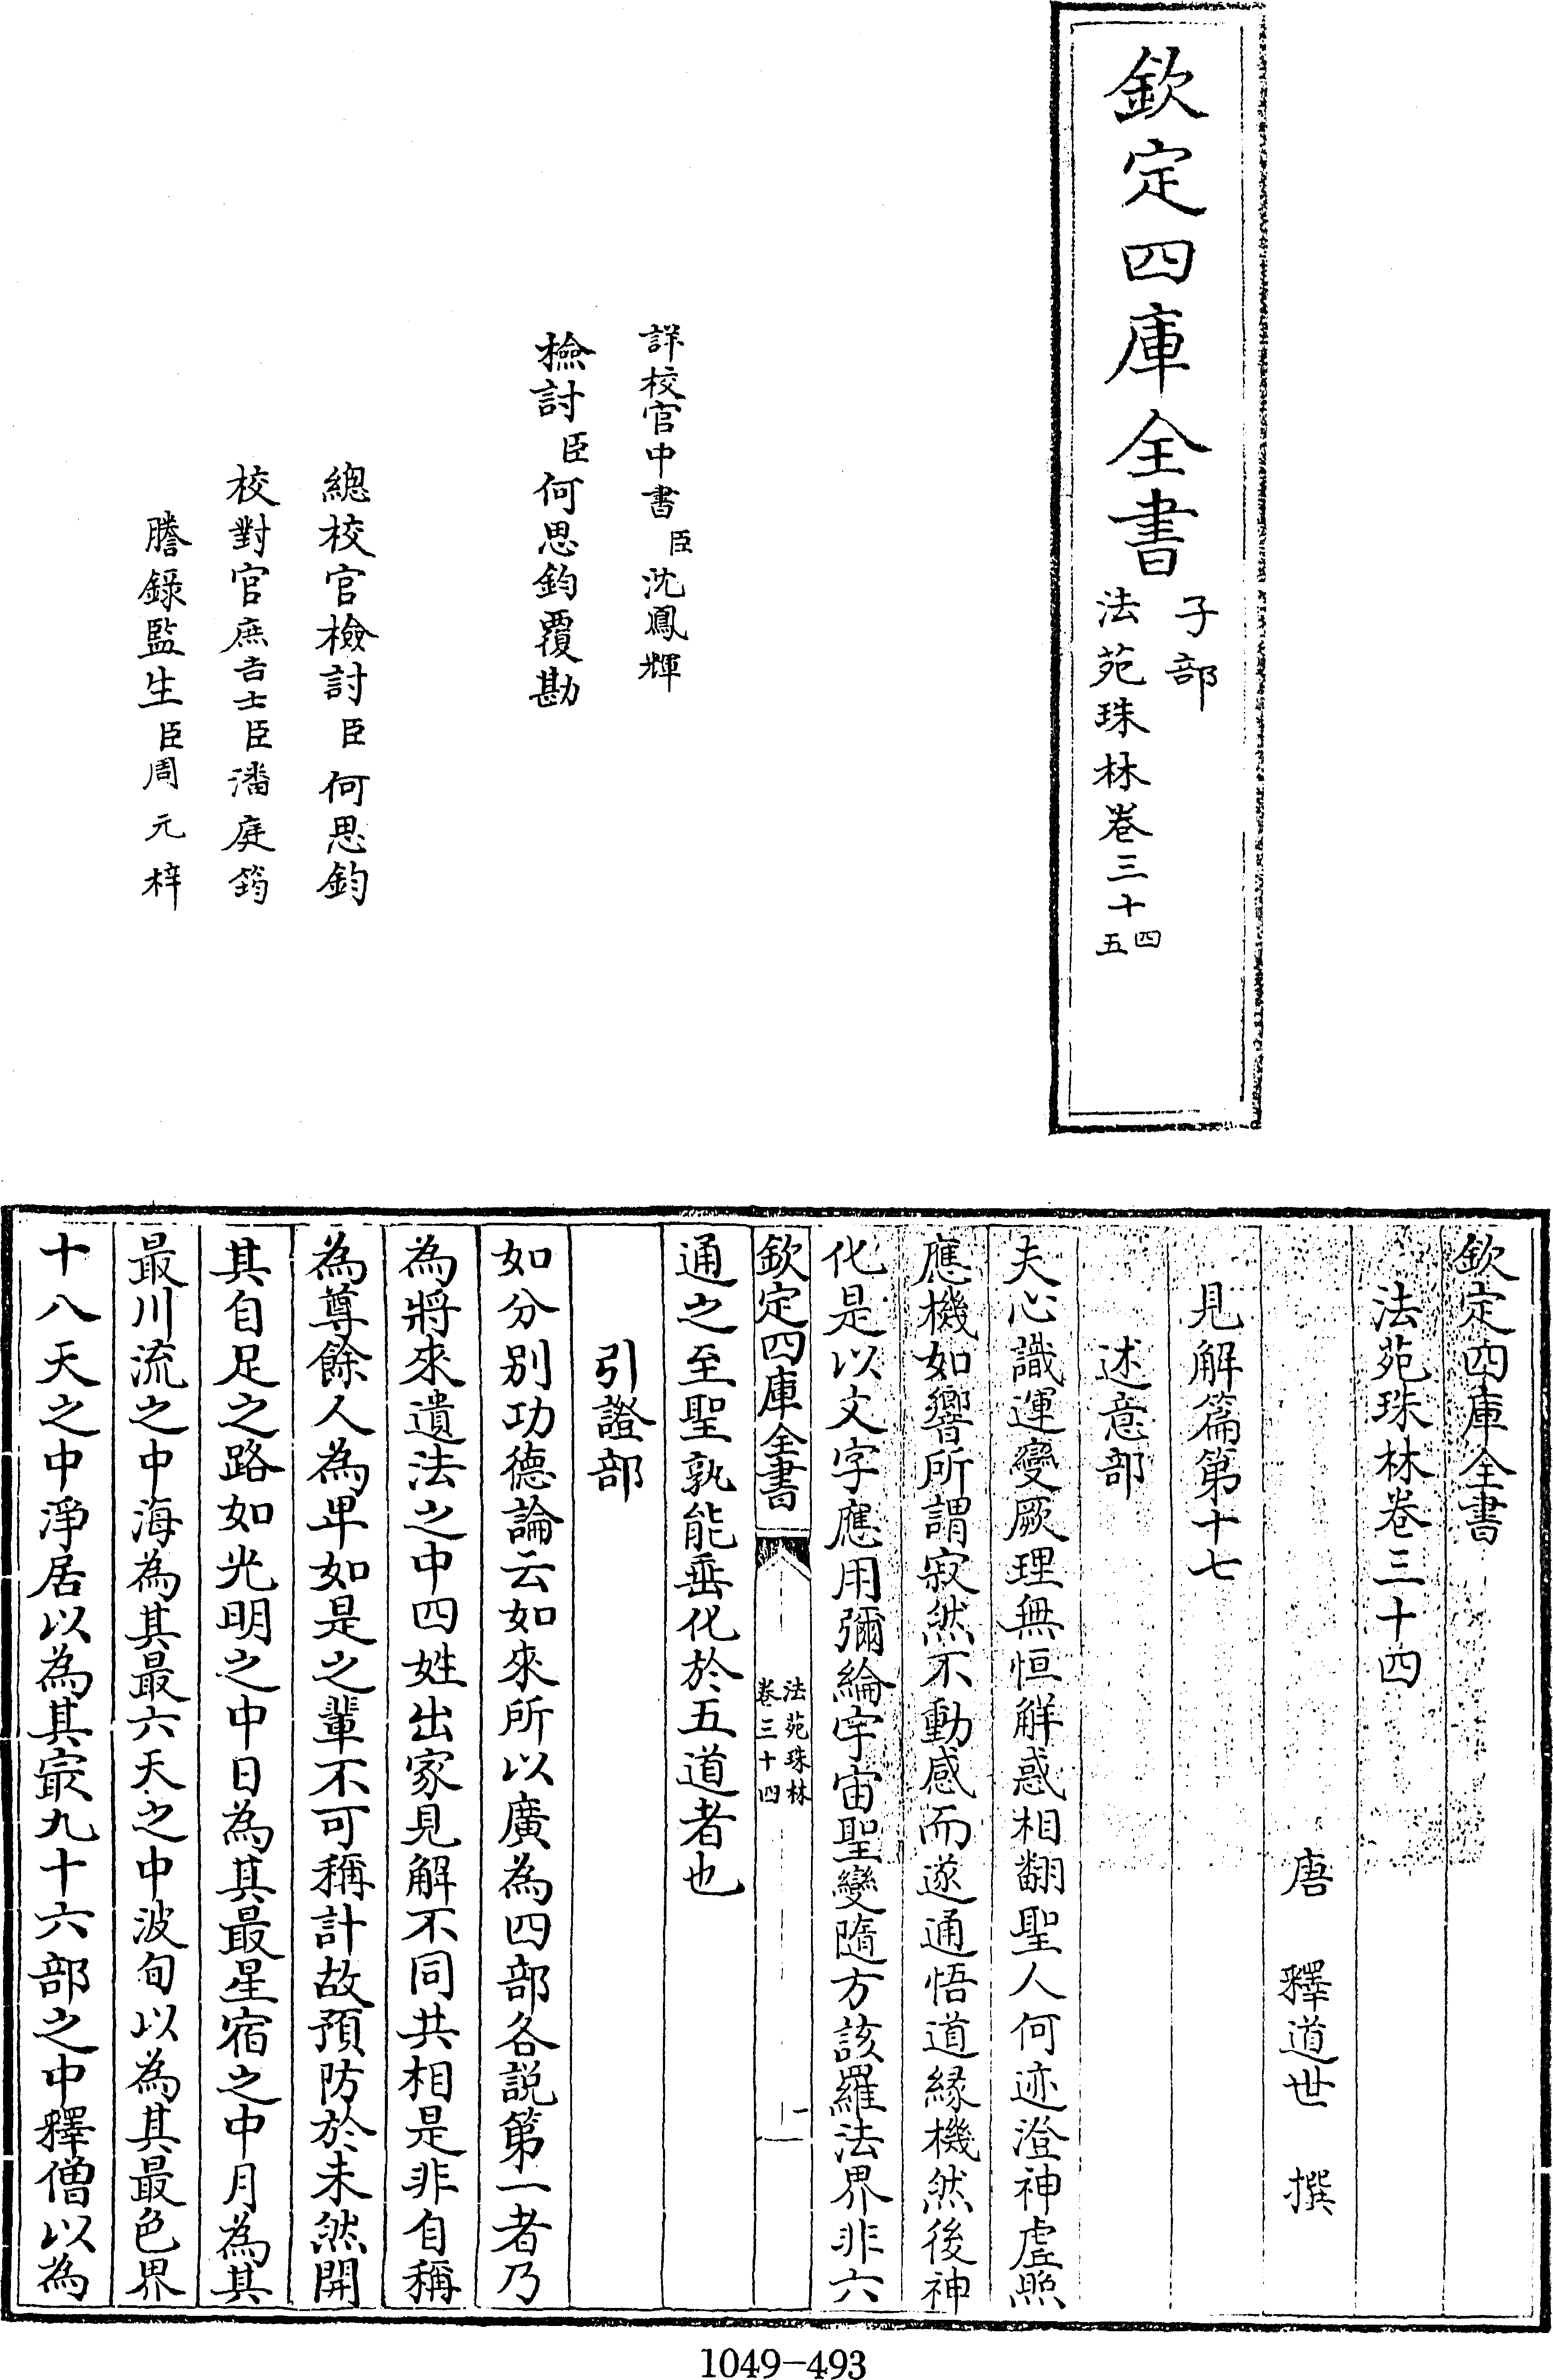 欽定四庫全書
子部
法苑珠林卷三十四五
詳校官中書臣沈鳳輝
檢討臣何思鈞覆勘
總校官檢討臣何思鈞
校對官庶吉士臣潘庭筠
謄錄監生臣周元梓
欽定四庫全書
法苑珠林卷三十四
唐 釋道世 撰
見解篇第十七
述意部
夫心識運變厥理無恒解惑相翻聖人何迹澄神虛照
應機如響所謂寂然不動感而遂通悟道緣機然後神
化是以文字應用彌綸宇宙聖變隨方該羅法界非六
欽定四庫全書
法苑珠林
卷三十四
一
通之至聖孰能垂化於五道者也
引證部
如分别功德論云如來所以廣為四部各說第一者乃
為將來遺法之中四姓出家見解不同共相是非自稱
為尊餘人為卑如是之輩不可稱計故預防於未然開
其自足之路如光明之中日為其最星宿之中月為其
最川流之中海為其最六天之中波旬以為其最色界
十八天之中淨居以為其最九十六部之中釋僧以為
1049-493